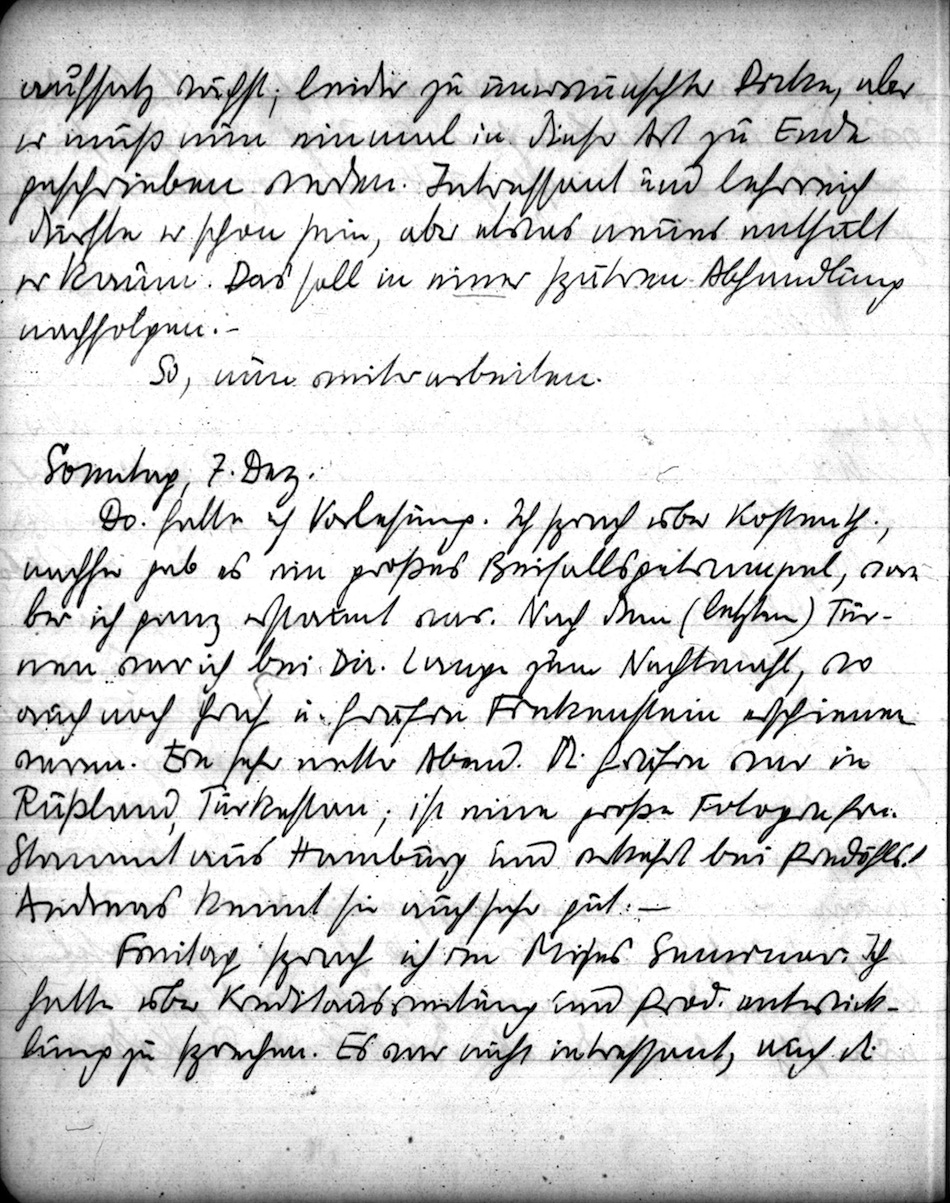 aufsatz wächst; leider zu unerwünschter Dicke, aber
er muß nun einmal in dieser Art zu Ende
geschrieben werden. Intressant und lehrreich
dürfte er schon sein, aber etwas neues enthält
er kaum. Das soll in einer späteren Abhandlung
nachfolgen.–
So, nun weiter arbeiten.
Sonntag, 7. Dez.
Do. hatte ich Vorlesung. Ich sprach über Kostenth.,
nachher gab es ein großes Beifallsgetrampel, worü-
ber ich ganz erstaunt war. Nach dem (letzten) Tur-
nen war ich bei Dir. Lange zum Nachtmahl, wo
auch noch Graf u. Gräfin Frankenstein erschienen
waren. Ein sehr netter Abend. Di Gräfin war in
Rußland, Türkestan; ist eine große Fotografin.
Stammt aus Hamburg und verkehrt bei Predöhls!
Andreas kennt sie auch sehr gut.—
Freitag sprach ich im Mises Seminar. Ich
hatte über Kreditausweitung und Prod. entwick-
lung zu sprechen. Es war nicht intressant, auch di